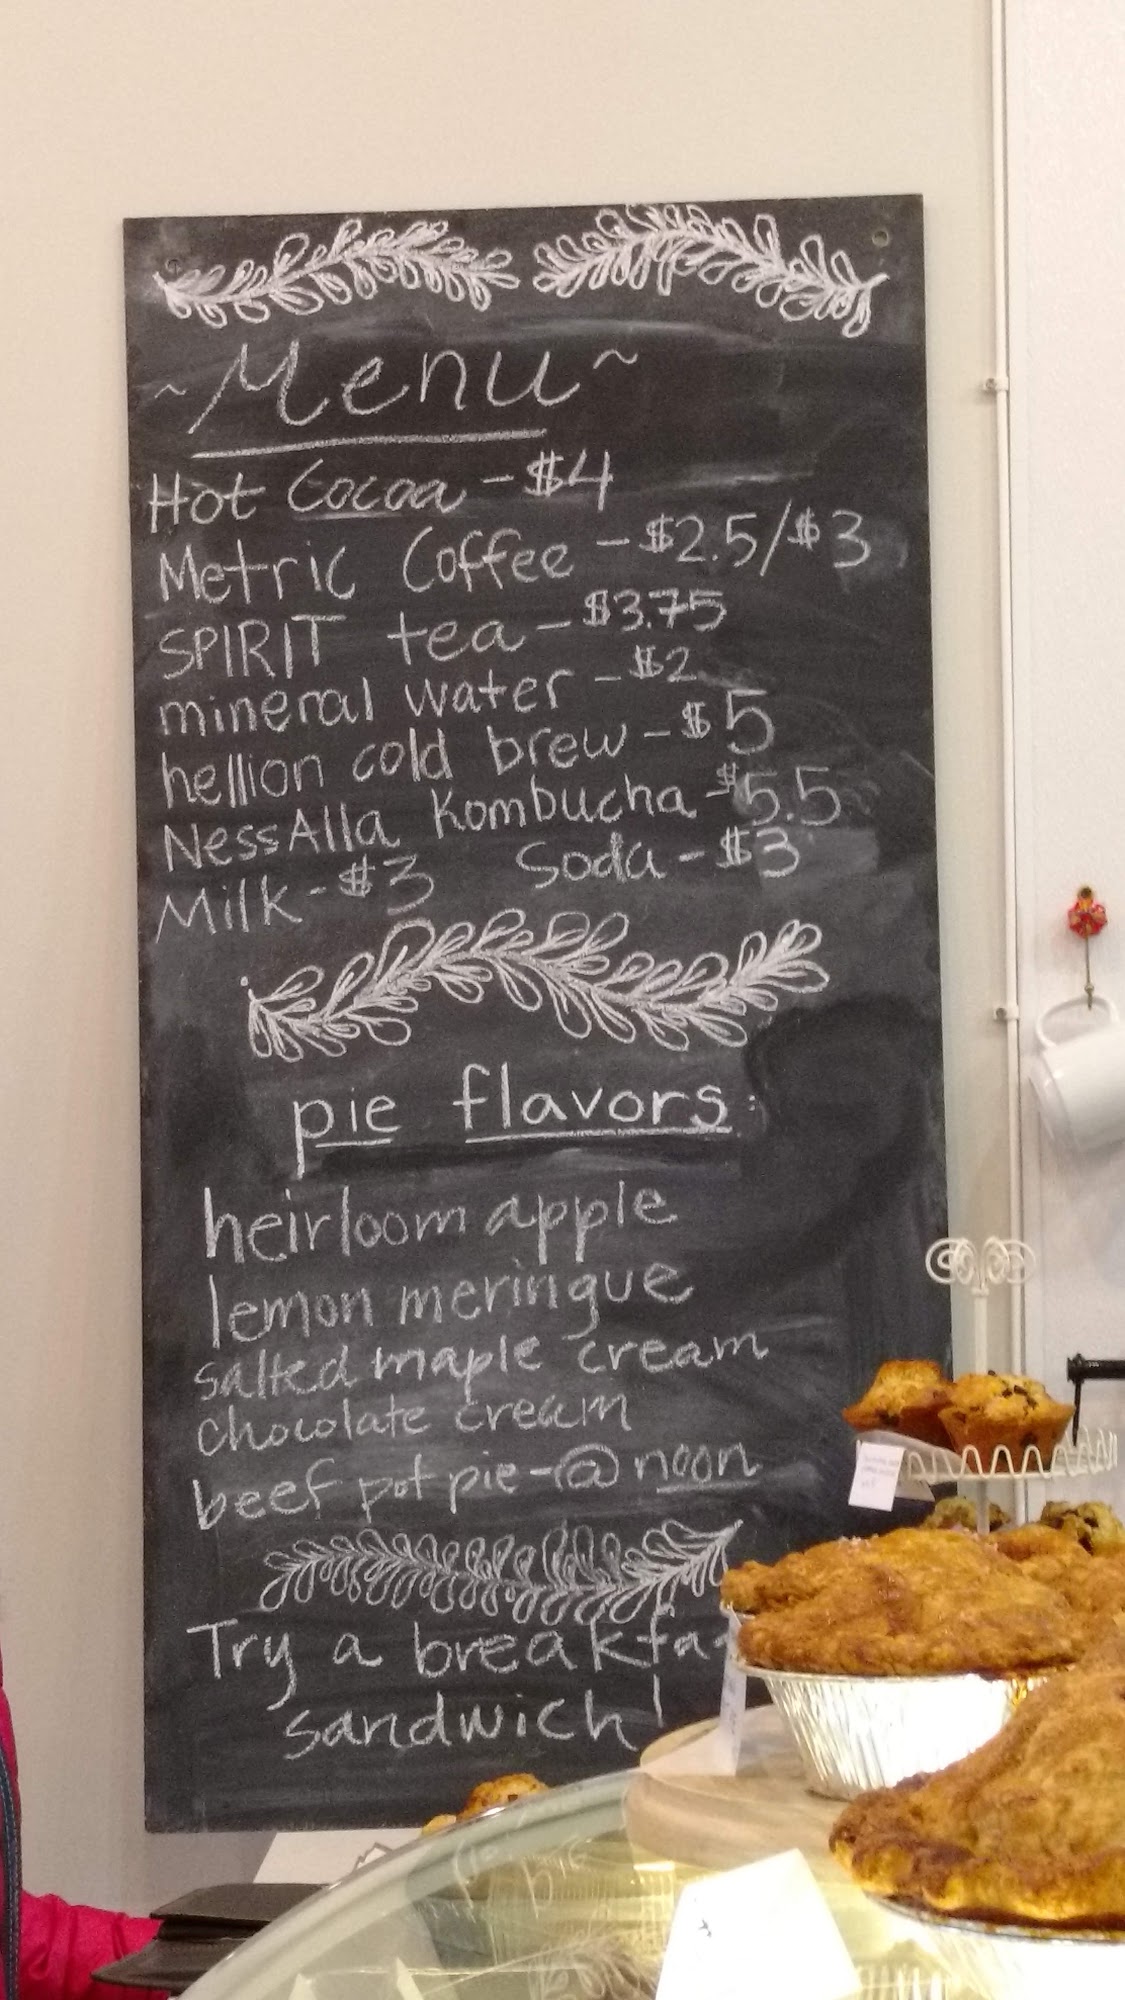 ~Menu~
Hot Cocoa - $4
Metric Coffee - $2.5/$3
SPIRIT tea - $3.75
mineral water - $2
hellion cold brew - $5
NessAlla Kombucha - $5.5
Milk - $3 Soda - $3
pie flavors:
heirloom apple
lemon meringue
salted maple cream
chocolate cream
beef pot pie - @ noon
Try a breakfa
sandwich!